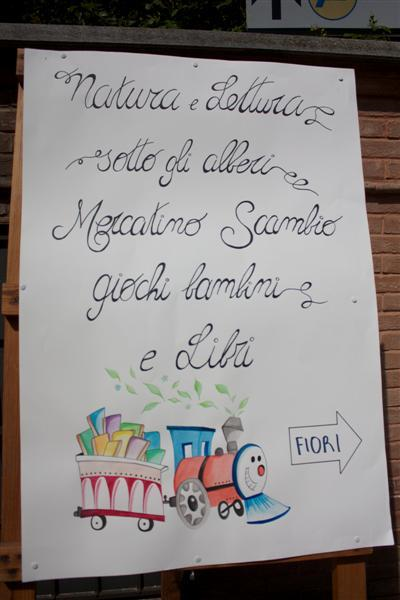 Natura e Lettura
sotto gli alberi
Mercatino Scambio
giochi bambini
e Libri
FIORI